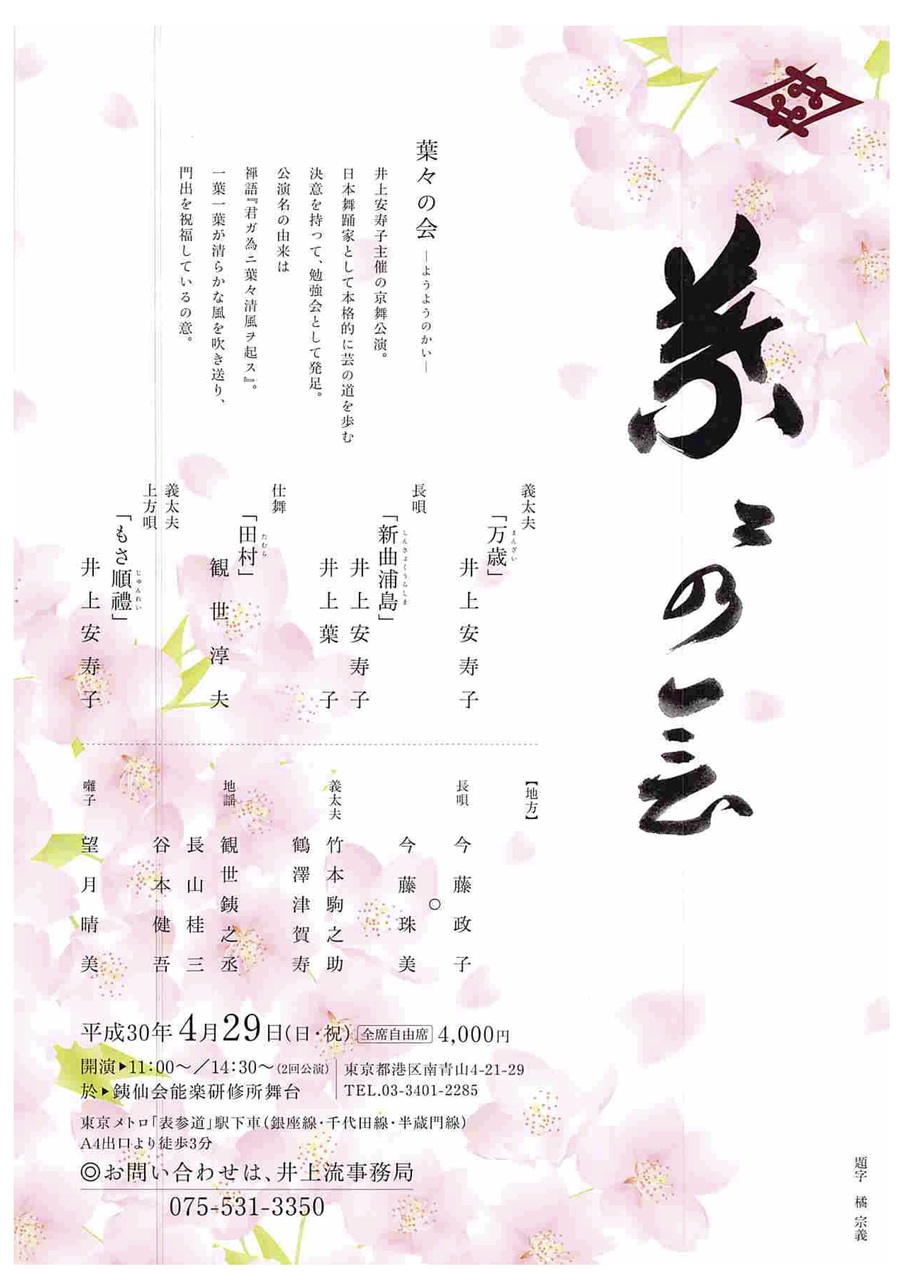 葉々の会
葉々の会 ―ようようのかい―
井上安寿子主催の京舞公演。
日本舞踊家として本格的に芸の道を歩む
決意を持つて、勉強会として発足。
公演名の由来は
禅語『君ガ為ニ葉々清風ヲ起ス』。
一葉一葉が清らかな風を吹き送り、
門出を祝福しているの意。
義太夫
「万歳」
まんざい
井上安寿子
長唄
「新曲浦島」
しんきょくうらしま
井上安寿子
井上葉子
仕舞
「田村」
たむら
観世淳夫
義太夫
上方唄
「もさ順禮」
じゅんれい
井上安寿子
【地方】
長唄
今藤政子
○
今藤珠美
義太夫
竹本駒之助
鶴澤津賀寿
地謡
観世銕之丞
長山桂三
谷本健吾
囃子
望月晴美
平成30年4月29日(日・祝) 全席自由席 4,000円
開演▶11:00〜/14:30〜(2回公演)
於▶銕仙会能楽研修所舞台
東京都港区南青山4-21-29
TEL.03-3401-2285
東京メトロ「表参道」駅下車(銀座線・千代田線・半蔵門線)
A4出口より徒歩3分
◎お問い合わせは、井上流事務局
075-531-3350
題字 橘 宗義